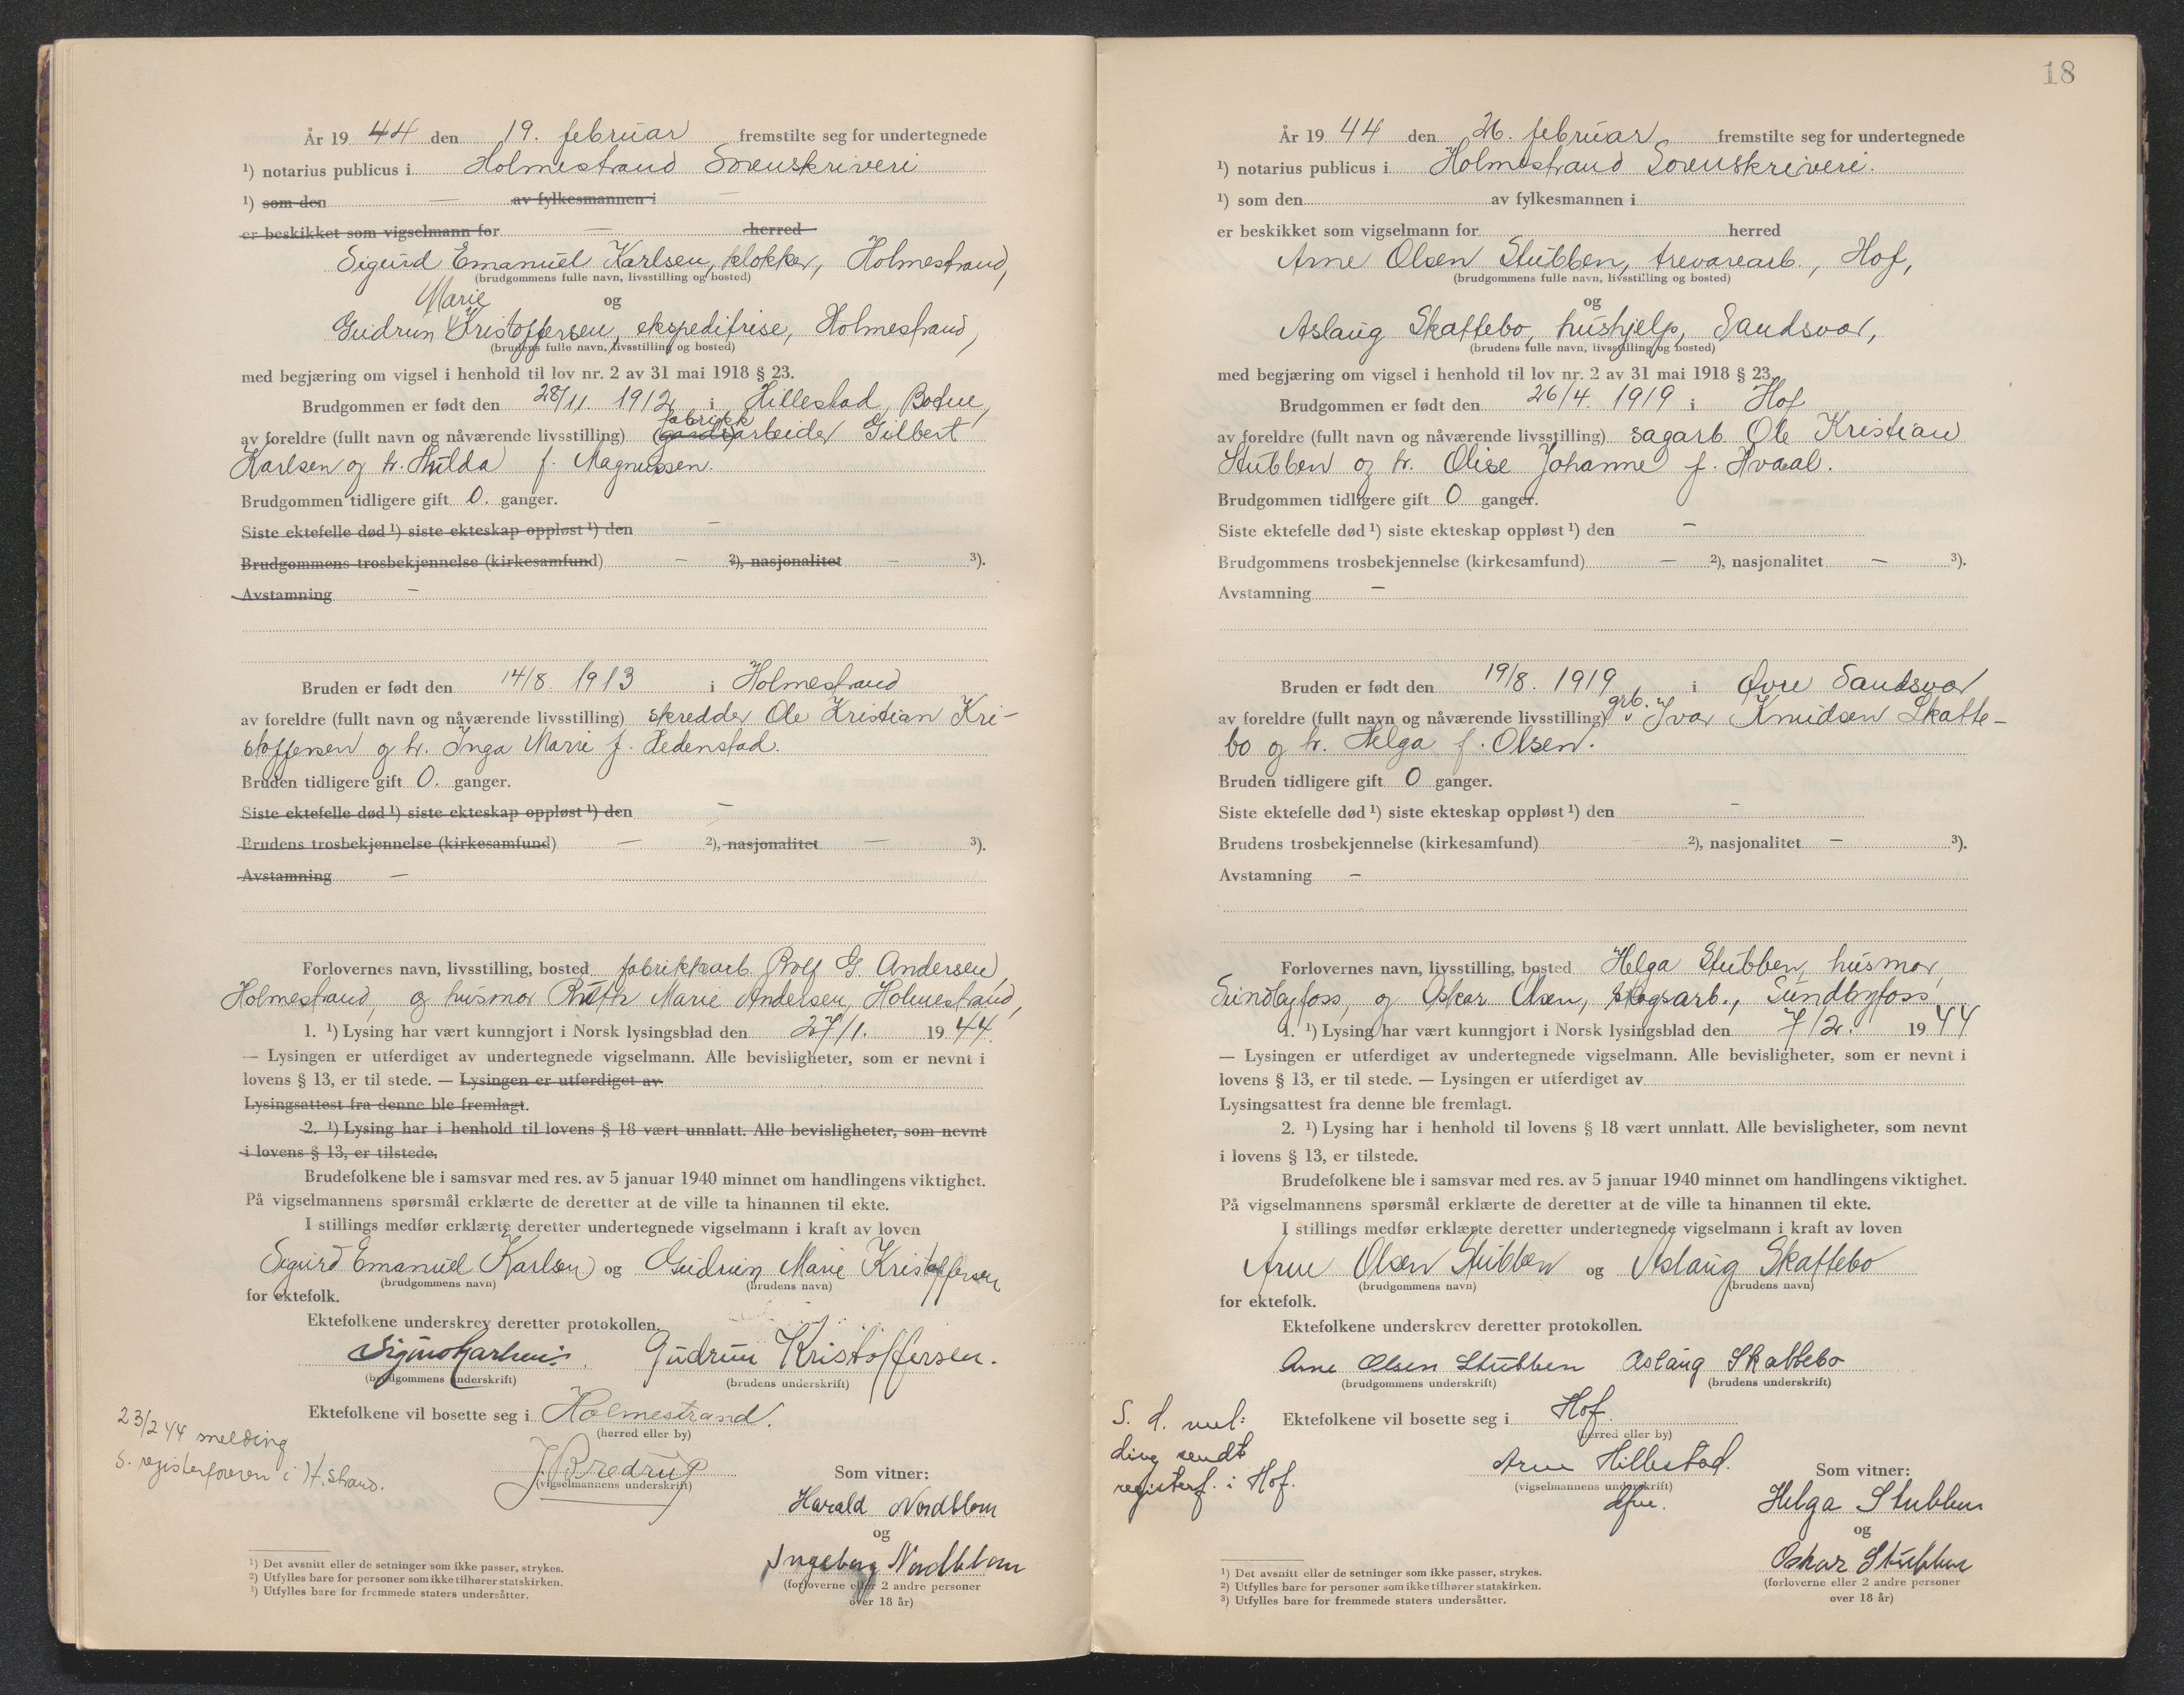 År 19 44 den 19. februar fremstilte seg for undertegnede
¹) notarius publicus i Holmestrand Sorenskriveri
¹) som den — av fylkesmannen i —
er beskikket som vigselmann for — herred
Sigurd Emanuel Karlsen, klokker, Holmestrand,
(brudgommens fulle navn, livsstilling og bosted)
Marie og
Gudrun Kristoffersen, ekspeditrise, Holmestrand,
(brudens fulle navn, livsstilling og bosted)
med begjæring om vigsel i henhold til lov nr. 2 av 31 mai 1918 § 23.
Brudgommen er født den 28/11. 1912 i Hillestad, Botne,
fabrikk
av foreldre (fullt navn og nåværende livsstilling) (gards)arbeider Gilbert
Karlsen og h. Hulda f. Magnussen.
Brudgommen tidligere gift 0. ganger.
Siste ektefelle død ¹) siste ekteskap oppløst ¹) den —
Brudgommens trosbekjennelse (kirkesamfund) — ²), nasjonalitet — ³).
Avstamning —
Bruden er født den 14/8. 1913 i Holmestrand
av foreldre (fullt navn og nåværende livsstilling) skredder Ole Kristian Kri-
stoffersen og h. Inga Marie f. Hedenstad.
Bruden tidligere gift 0. ganger.
Siste ektefelle død ¹) siste ekteskap oppløst ¹) den —
Brudens trosbekjennelse (kirkesamfund) — ²), nasjonalitet — ³).
Avstamning —
Forlovernes navn, livsstilling, bosted fabrikkarb. Rolf G. Andersen,
Holmestrand, og husmor Ruth Marie Andersen, Holmestrand,
1. ¹) Lysing har vært kunngjort i Norsk lysingsblad den 27/1. 19 44.
— Lysingen er utferdiget av undertegnede vigselmann. Alle bevisligheter, som er nevnt i
lovens § 13, er til stede. — Lysingen er utferdiget av
Lysingsattest fra denne ble fremlagt.
2. ¹) Lysing har i henhold til lovens § 18 vært unnlatt. Alle bevisligheter, som nevnt
i lovens § 13, er tilstede.
Brudefolkene ble i samsvar med res. av 5 januar 1940 minnet om handlingens viktighet.
På vigselmannens spørsmål erklærte de deretter at de ville ta hinannen til ekte.
I stillings medfør erklærte deretter undertegnede vigselmann i kraft av loven
Sigurd Emanuel Karlsen og Gudrun Marie Kristoffersen
(brudgommens navn) (brudens navn)
for ektefolk.
Ektefolkene underskrev deretter protokollen.
Sigurd Karlsen. Gudrun Kristoffersen.
(brudgommens underskrift) (brudens underskrift)
Ektefolkene vil bosette seg i Holmestrand.
(herred eller by)
23/2 44 melding
s. registerføreren i H.strand.
(vigselmannens underskrift)
Som vitner:
Harald Nordblom
og
Ingeborg Nordblom
(forloverne eller 2 andre personer
over 18 år)
¹) Det avsnitt eller de setninger som ikke passer, strykes.
²) Utfylles bare for personer som ikke tilhører statskirken.
³) Utfylles bare for fremmede staters undersåtter.
18
År 19 44 den 26. februar fremstilte seg for undertegnede
¹) notarius publicus i Holmestrand Sorenskriveri.
¹) som den av fylkesmannen i
er beskikket som vigselmann for herred
Arne Olsen Stubben, trevarearb., Hof,
(brudgommens fulle navn, livsstilling og bosted)
og
Aslaug Skattebo, hushjelp, Sandsvær,
(brudens fulle navn, livsstilling og bosted)
med begjæring om vigsel i henhold til lov nr. 2 av 31 mai 1918 § 23.
Brudgommen er født den 26/4. 1919 i Hof
av foreldre (fullt navn og nåværende livsstilling) sagarb. Ole Kristian
Stubben og h. Olise Johanne f. Hvaal.
Brudgommen tidligere gift 0 ganger.
Siste ektefelle død ¹) siste ekteskap oppløst ¹) den —
Brudgommens trosbekjennelse (kirkesamfund) — ²), nasjonalitet — ³).
Avstamning —
Bruden er født den 19/8. 1919 i Øvre Sandsvær
av foreldre (fullt navn og nåværende livsstilling) grb. Ivar Knudsen Skatte-
bo og h. Helga f. Olsen.
Bruden tidligere gift 0 ganger.
Siste ektefelle død ¹) siste ekteskap oppløst ¹) den —
Brudens trosbekjennelse (kirkesamfund) ²), nasjonalitet — ³).
Avstamning —
Forlovernes navn, livsstilling, bosted Helga Stubben, husmor,
Sundbyfoss, og Oskar Olsen, skogsarb., Sundbyfoss
1. ¹) Lysing har vært kunngjort i Norsk lysingsblad den 7/2. 19 44
— Lysingen er utferdiget av undertegnede vigselmann. Alle bevisligheter, som er nevnt i
lovens § 13, er til stede. — Lysingen er utferdiget av
Lysingsattest fra denne ble fremlagt.
2. ¹) Lysing har i henhold til lovens § 18 vært unnlatt. Alle bevisligheter, som nevnt
i lovens § 13, er tilstede.
Brudefolkene ble i samsvar med res. av 5 januar 1940 minnet om handlingens viktighet.
På vigselmannens spørsmål erklærte de deretter at de ville ta hinannen til ekte.
I stillings medfør erklærte deretter undertegnede vigselmann i kraft av loven
Arne Olsen Stubben og Aslaug Skattebo
(brudgommens navn) (brudens navn)
for ektefolk.
Ektefolkene underskrev deretter protokollen.
Arne Olsen Stubben Aslaug Skattebo
(brudgommens underskrift) (brudens underskrift)
Ektefolkene vil bosette seg i Hof.
(herred eller by)
S. d. mel-
ding sendt
registerf. i Hof.
Arne Hillestad.
(vigselmannens underskrift)
Som vitner:
Helga Stubben
og
Oskar Stubben
(forloverne eller 2 andre personer
over 18 år)
¹) Det avsnitt eller de setninger som ikke passer, strykes.
²) Utfylles bare for personer som ikke tilhører statskirken.
³) Utfylles bare for fremmede staters undersåtter.